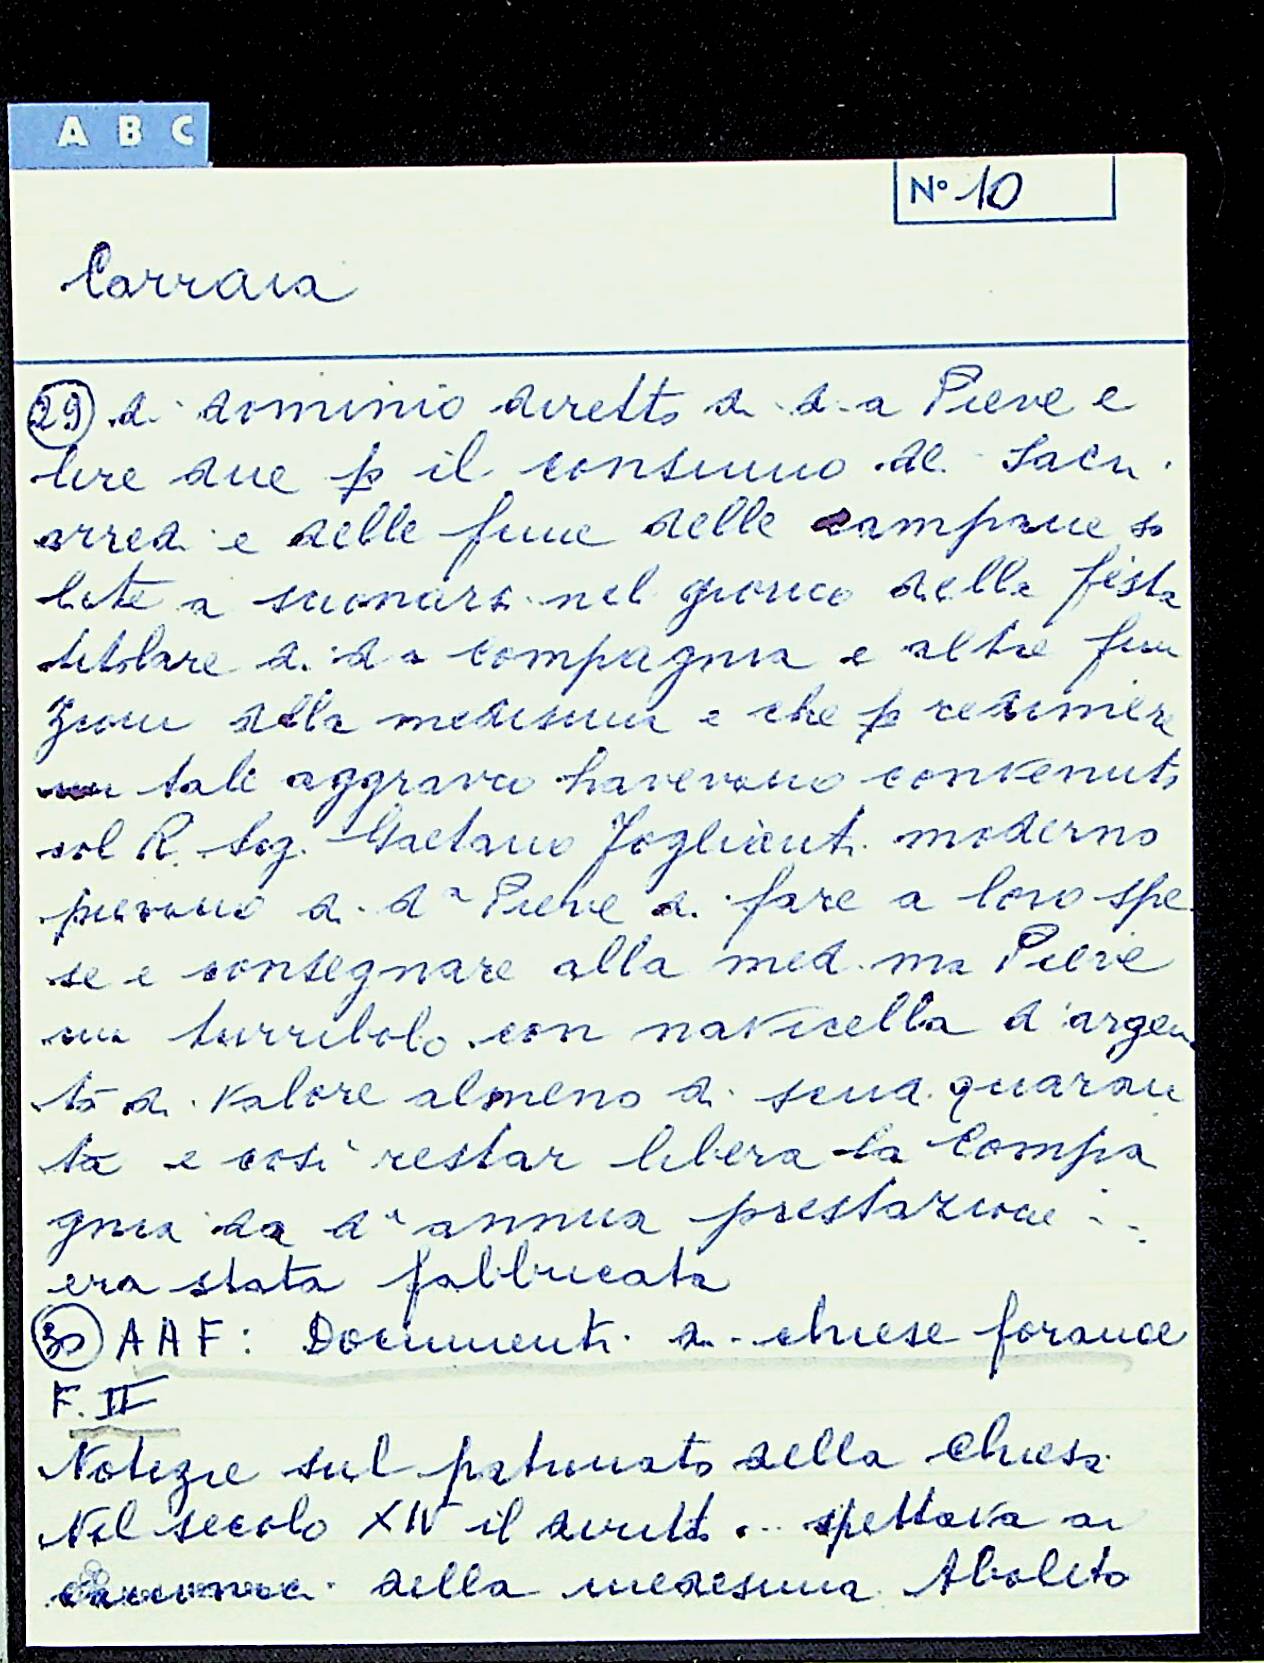 A B C
N° 10
Carraia
29 di dominio diretto di d.a Pieve e
lire due p il consumo de Sacri
arredi e delle fune delle campane so
lite a suonarsi nel giorno della festa
titolare di d.a Compagnia e altre fun
zioni della medesima e che p redimere
tale aggravio havevano convenuto
col R. Sig. Gaetano Foglianti moderno
pievano di d.a Pieve di fare a loro spe
se e consegnare alla med.ma Pieve
un turribolo con navicella d'argen
to di valore almeno di scudi quaran
ta e così restar libera la Compa
gnia da d.a annua prestazione ...
era stata fabbricata
30 AAF: Documenti di chiese foranee
F. II
Notizie sul patronato della Chiesa
Nel secolo XIV il diritto ... spettava ai
della medesima. Abolito